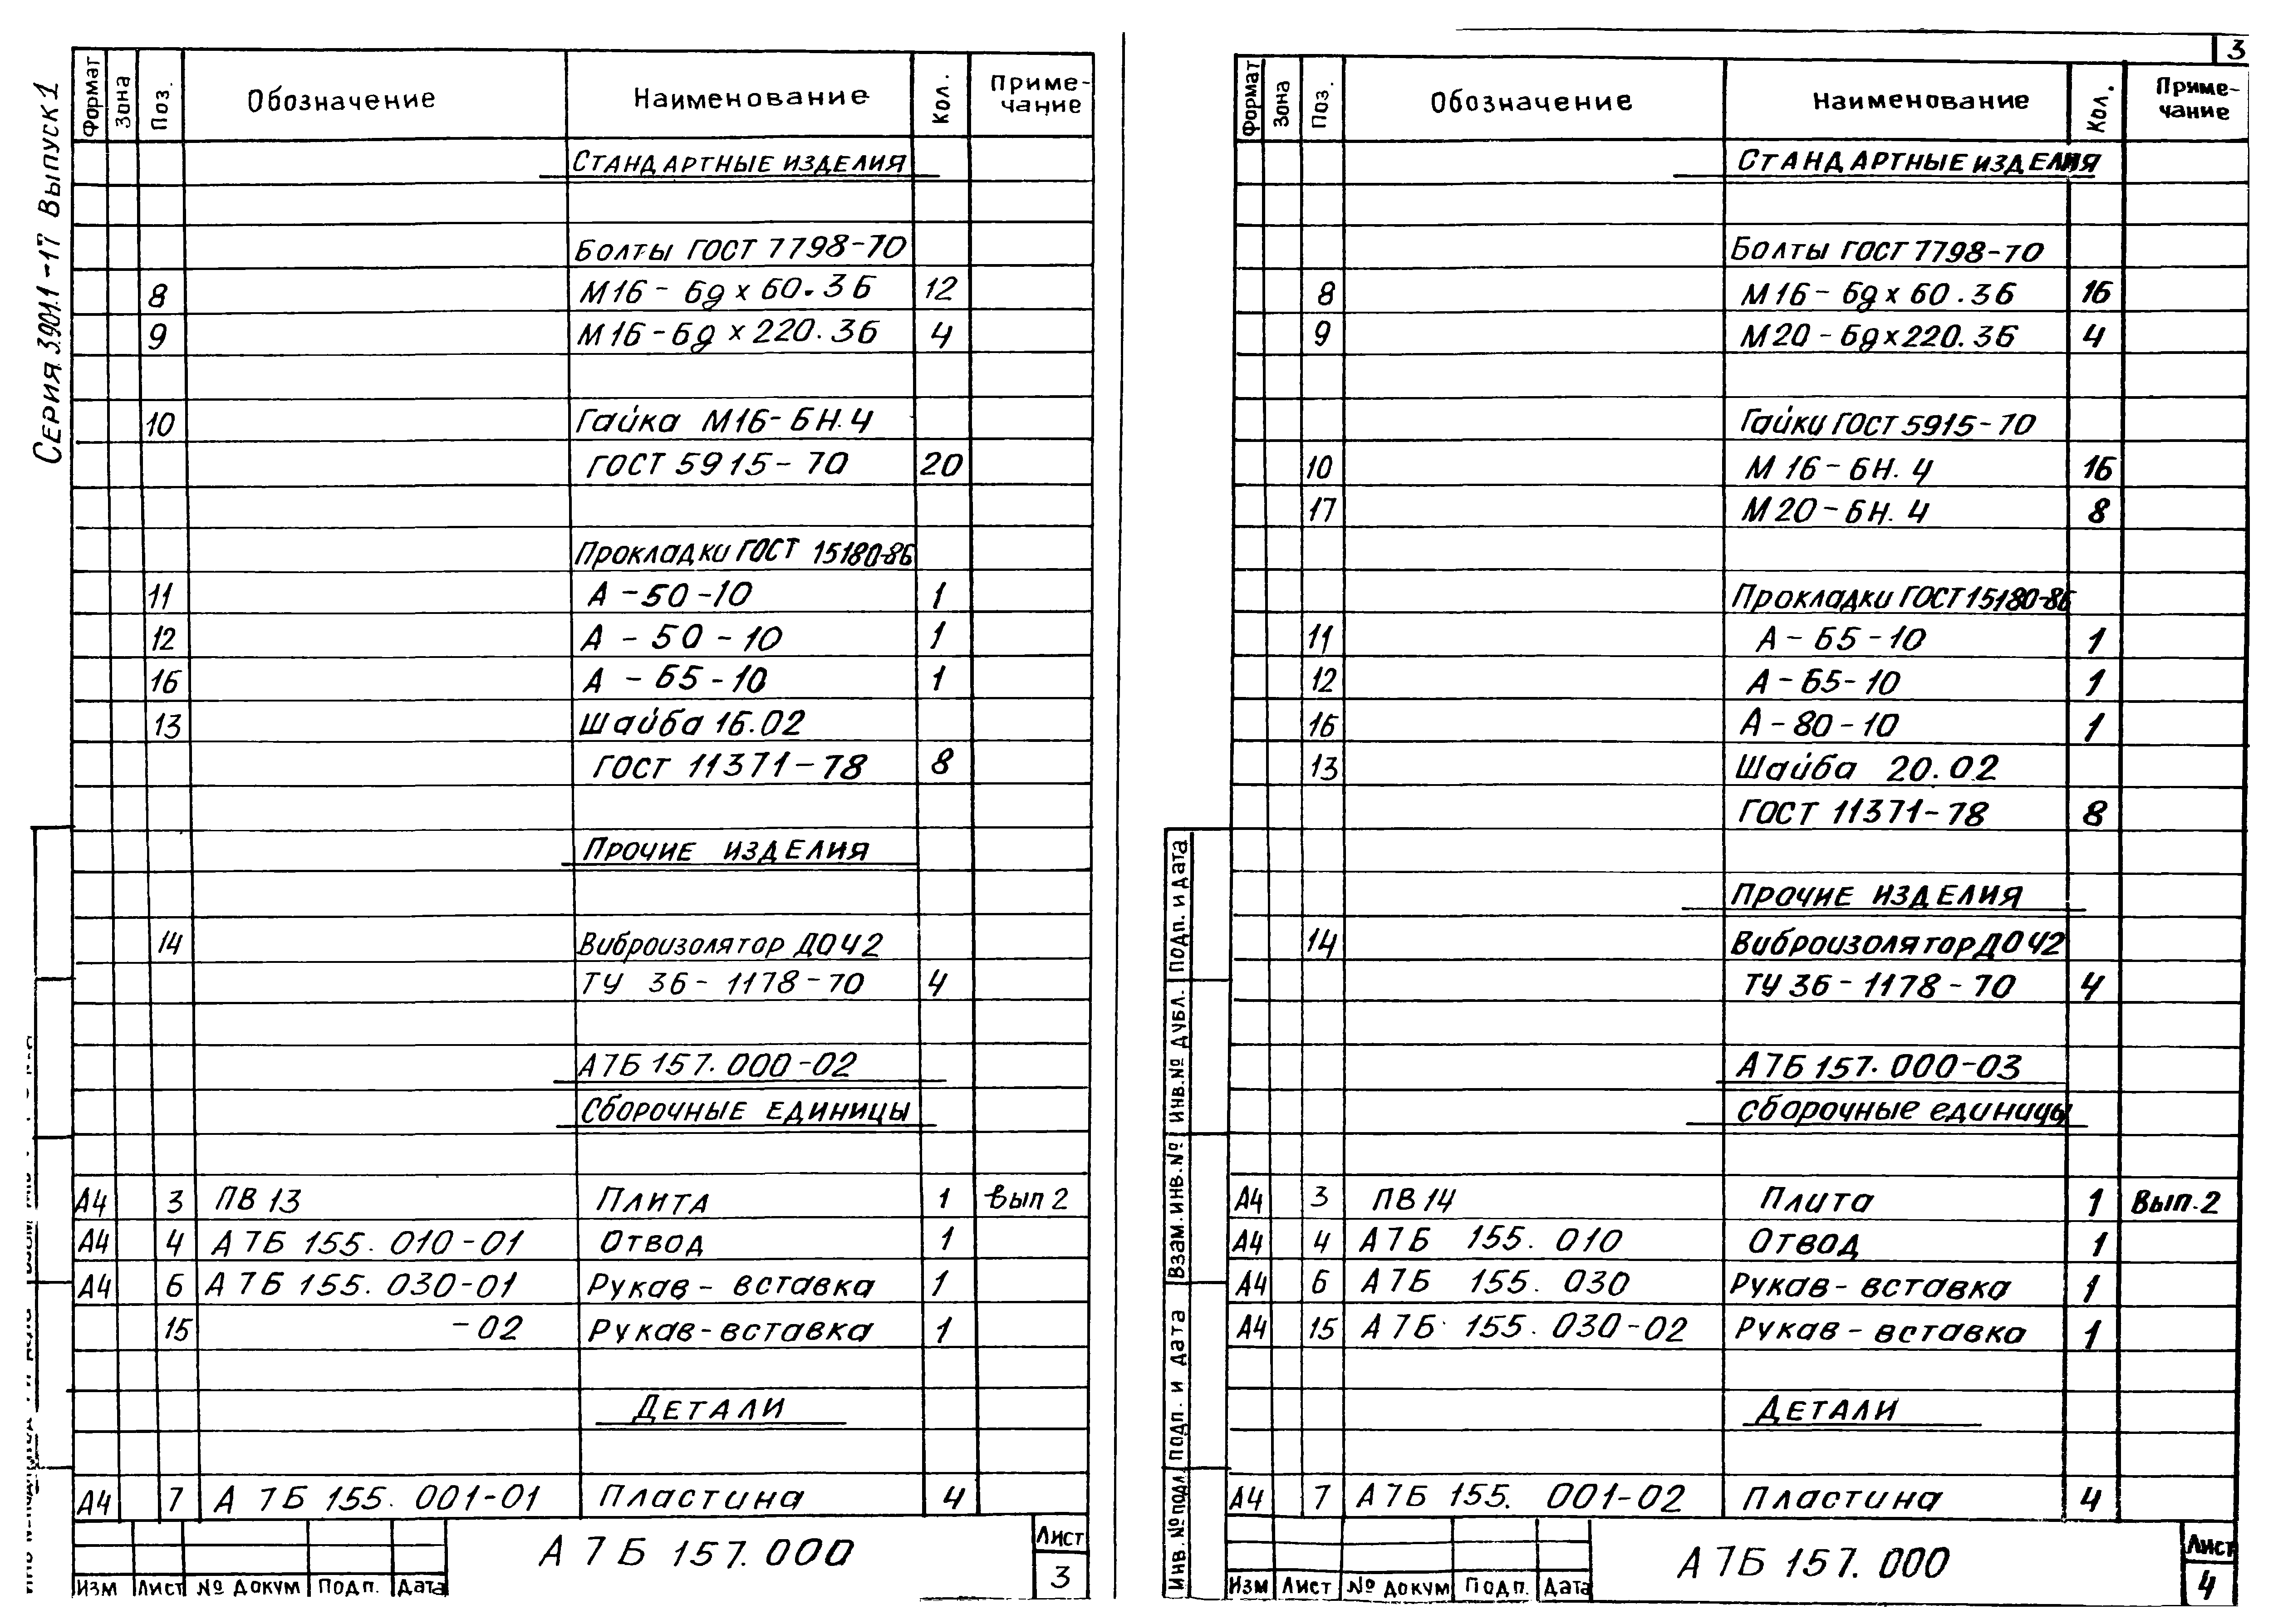 Серия 3.901.1-17 Выпуск 1
Формат Зона Поз. Обозначение Наименование Кол. Приме-
чание
Стандартные изделия
Болты ГОСТ 7798-70
8 М16-6gх60.36 12
9 М16-6gх220.36 4
10 Гайка М16-6Н.4
ГОСТ 5915-70 20
Прокладки ГОСТ 15180-86
11 А-50-10 1
12 А-50-10 1
16 А-65-10 1
13 Шайба 16.02
ГОСТ 11371-78 8
Прочие изделия
14 Виброизолятор ДО42
ТУ 36-1178-70 4
А7Б157.000-02
Сборочные единицы
А4 3 ПВ13 Плита 1 вып 2
А4 4 А7Б 155.010-01 Отвод 1
А4 6 А7Б 155.030-01 Рукав-вставка 1
15 -02 Рукав-вставка 1
Детали
А4 7 А7Б 155.001-01 Пластина 4
Изм Лист № докум Подп. Дата
А7Б 157.000
Лист
3
3
Формат Зона Поз. Обозначение Наименование Кол. Приме-
чание
Стандартные изделия
Болты ГОСТ 7798-70
8 М16-6gх60.36 16
9 М20-6gх220.36 4
Гайки ГОСТ 5915-70
10 М16-6Н.4 16
17 М20-6Н.4 8
Прокладки ГОСТ 15180-86
11 А-65-10 1
12 А-65-10 1
16 А-80-10 1
13 Шайба 20.02
ГОСТ 11371-78 8
Прочие изделия
14 Виброизолятор ДО42
ТУ 36-1178-70 4
А7Б157.000-03
Сборочные единицы
А4 3 ПВ14 Плита 1 Вып.2
А4 4 А7Б 155.010 Отвод 1
А4 6 А7Б 155.030 Рукав-вставка 1
А4 15 А7Б 155.030-02 Рукав-вставка 1
Детали
А4 7 А7Б 155.001-02 Пластина 4
Инв. № подл Подп. и дата Взам. инв. № Инв. № дубл. Подп. и дата
Изм Лист № докум Подп. Дата
А7Б 157.000
Лист
4